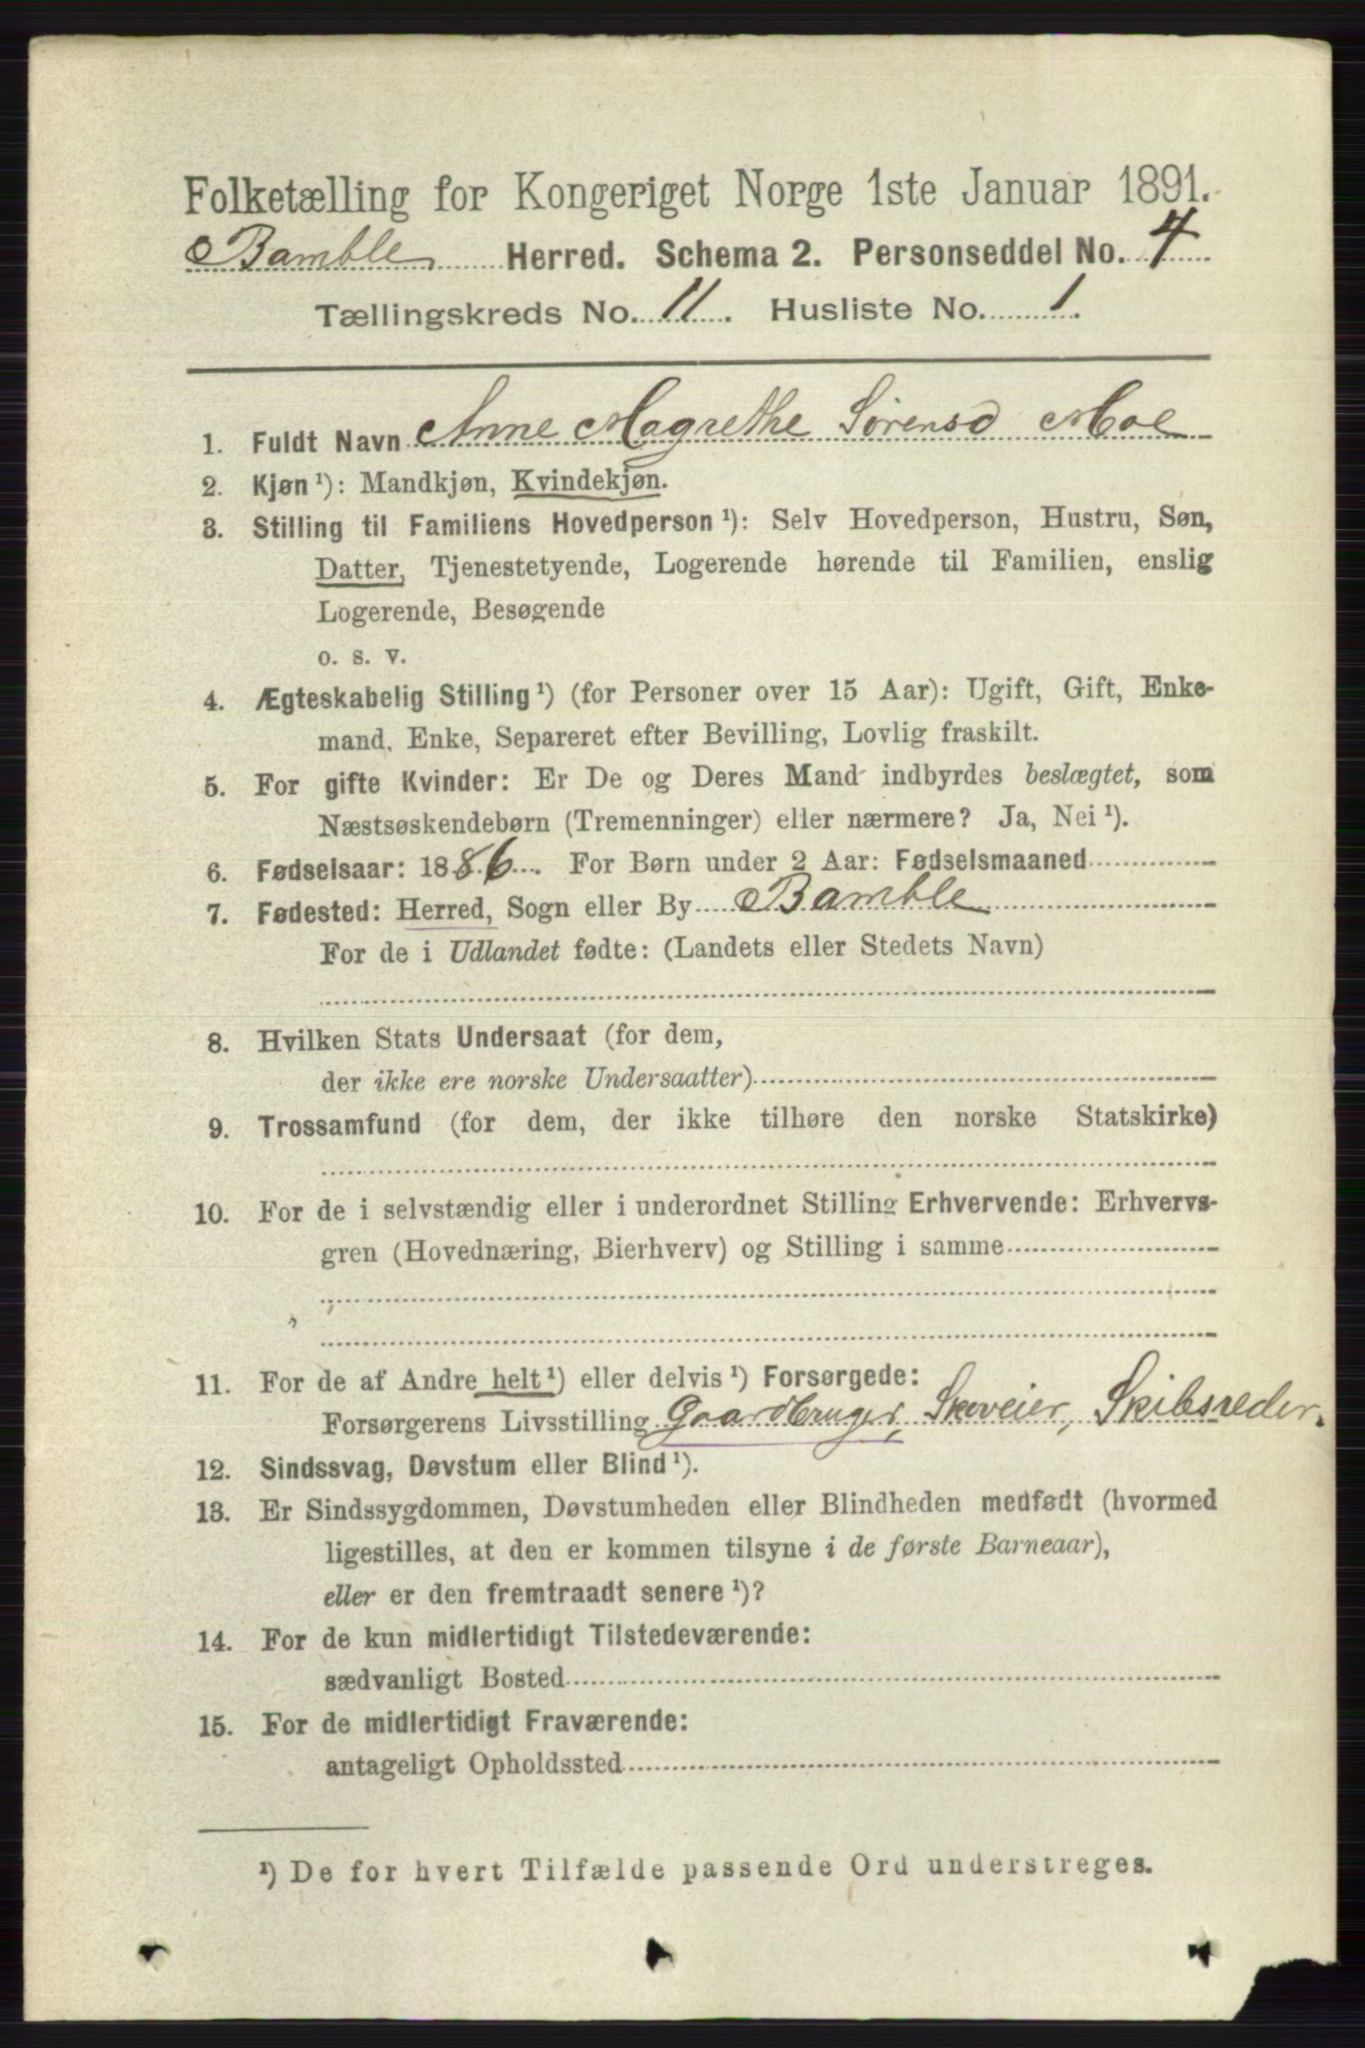 Folketælling for Kongeriget Norge 1ste Januar 1891.
Bamble Herred. Schema 2. Personseddel No. 4
Tællingskreds No. 11. Husliste No. 1.
1. Fuldt Navn Anne Magrethe Sørensd Moe
2. Kjøn ¹): Mandkjøn, Kvindekjøn.
3. Stilling til Familiens Hovedperson ¹): Selv Hovedperson, Hustru, Søn,
Datter, Tjenestetyende, Logerende hørende til Familien, enslig
Logerende, Besøgende
o. s. v.
4. Ægteskabelig Stilling ¹) (for Personer over 15 Aar): Ugift, Gift, Enke-
mand, Enke, Separeret efter Bevilling, Lovlig fraskilt.
5. For gifte Kvinder: Er De og Deres Mand indbyrdes beslægtet, som
Næstsøskendebørn (Tremenninger) eller nærmere? Ja, Nei ¹).
6. Fødselsaar: 1886. For Børn under 2 Aar: Fødselsmaaned
7. Fødested: Herred, Sogn eller By Bamble
For de i Udlandet fødte: (Landets eller Stedets Navn)
8. Hvilken Stats Undersaat (for dem,
der ikke ere norske Undersaatter)
9. Trossamfund (for dem, der ikke tilhøre den norske Statskirke)
10. For de i selvstændig eller i underordnet Stilling Erhvervende: Erhvervs-
gren (Hovednæring, Bierhverv) og Stilling i samme
11. For de af Andre helt ¹) eller delvis ¹) Forsørgede:
Forsørgerens Livsstilling Gaardbruger, Skoveier, Skibsreder.
12. Sindssvag, Døvstum eller Blind ¹).
13. Er Sindssygdommen, Døvstumheden eller Blindheden medfødt (hvormed
ligestilles, at den er kommen tilsyne i de første Barneaar),
eller er den fremtraadt senere ¹)?
14. For de kun midlertidigt Tilstedeværende:
sædvanligt Bosted
15. For de midlertidigt Fraværende:
antageligt Opholdssted
¹) De for hvert Tilfælde passende Ord understreges.